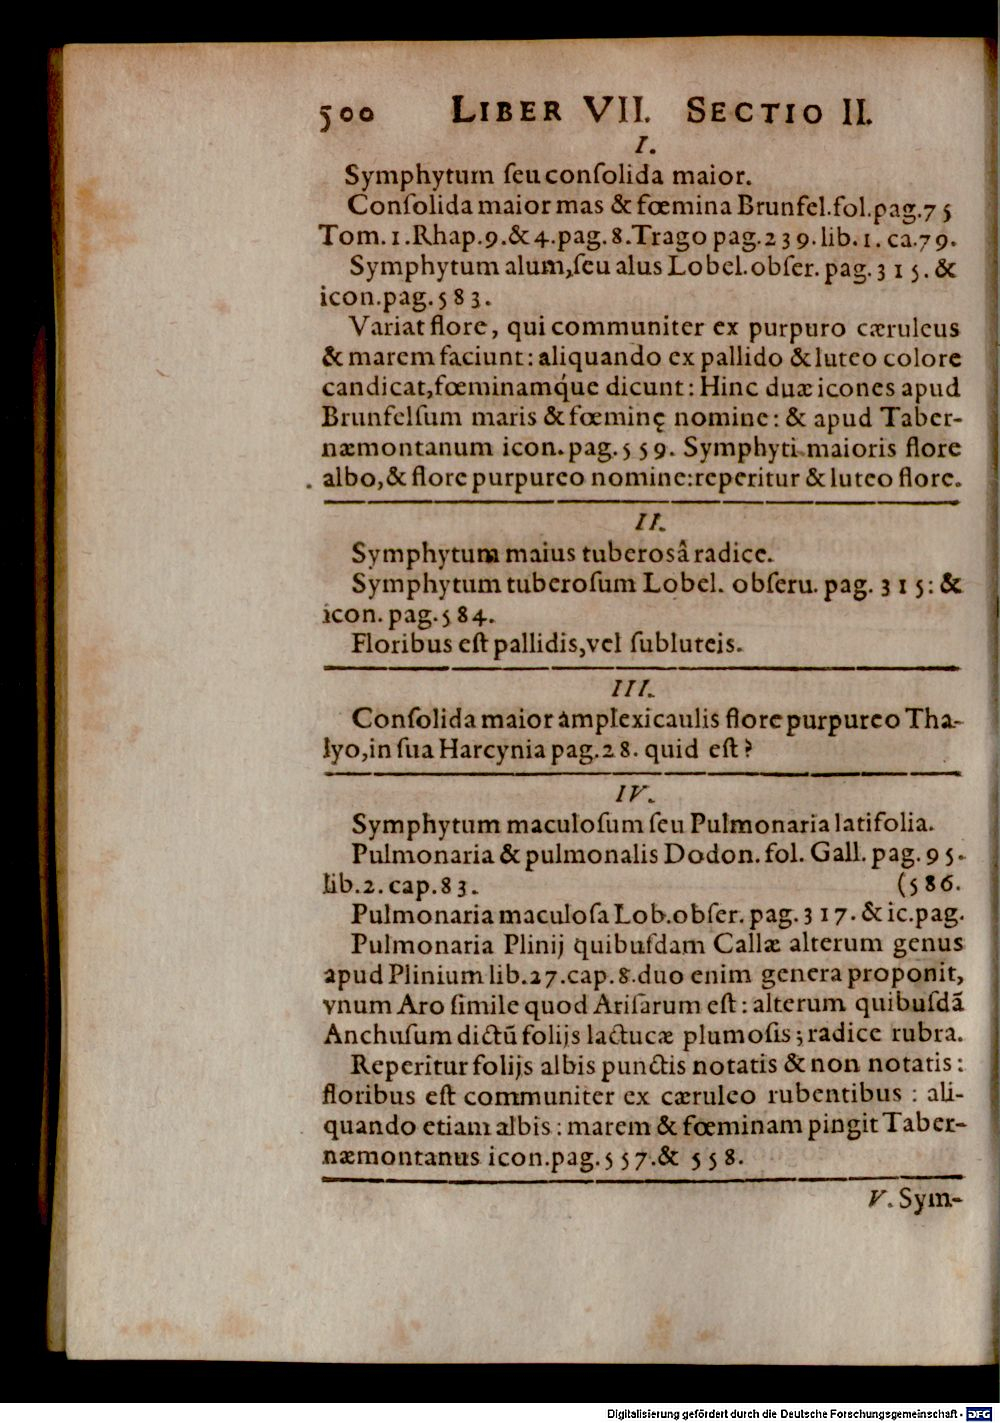 500 LIBER VII. SECTIO II.
I.
Symphytum ſeu conſolida maior.
Conſolida maior mas & fœmina Brunfel. fol. pag. 75
Tom. 1. Rhap. 9. & 4. pag. 8. Trago pag. 239. lib. 1. ca. 79.
Symphytum alum, ſeu alus Lobel. obſer. pag. 315. &
icon. pag. 583.
Variat flore, qui communiter ex purpuro cæruleus
& marem faciunt: aliquando ex pallido & luteo colore
candicat, fœminamq́ue dicunt: Hinc duæ icones apud
Brunfelſum maris & fœminę nomine: & apud Taber-
næmontanum icon. pag. 559. Symphyti maioris flore
albo, & flore purpureo nomine: reperitur & luteo flore.
II.
Symphytum maius tuberosâ radice.
Symphytum tuberoſum Lobel. obſeru. pag. 315: &
icon. pag. 584.
Floribus eſt pallidis, vel ſubluteis.
III.
Conſolida maior amplexicaulis flore purpureo Tha-
lyo, in ſua Harcynia pag. 28. quid eſt?
IV.
Symphytum maculoſum ſeu Pulmonaria latifolia.
Pulmonaria & pulmonalis Dodon. fol. Gall. pag. 95.
lib. 2. cap. 83. (586.
Pulmonaria maculoſa Lob. obſer. pag. 317. & ic. pag.
Pulmonaria Plinij quibuſdam Callæ alterum genus
apud Plinium lib. 27. cap. 8. duo enim genera proponit,
vnum Aro ſimile quod Ariſarum eſt: alterum quibuſdã
Anchuſum dictũ folijs lactucæ plumoſis; radice rubra.
Reperitur folijs albis punctis notatis & non notatis:
floribus eſt communiter ex cæruleo rubentibus: ali-
quando etiam albis: marem & fœminam pingit Taber-
næmontanus icon. pag. 557. & 558.
V. Sym-
Digitalisierung gefördert durch die Deutsche Forschungsgemeinschaft - DFG